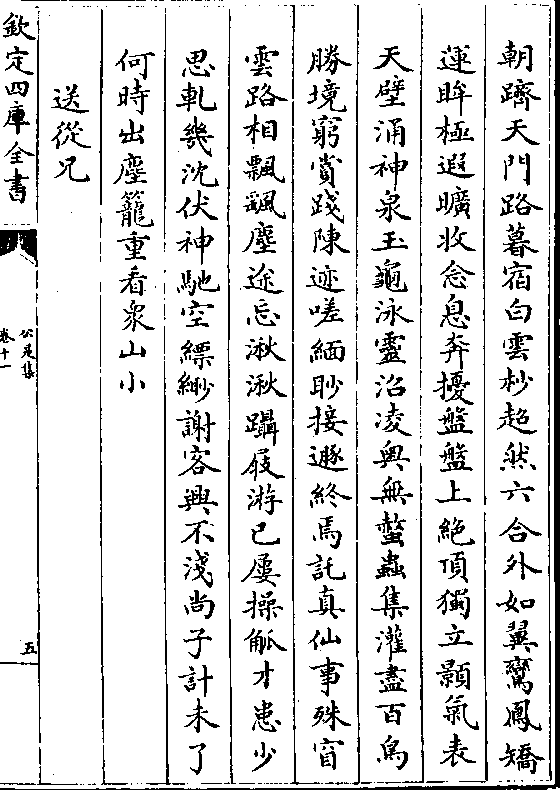 朝躋天門路暮宿白雲杪超然六合外如翼鸞鳳矯
運眸極遐曠收念息奔擾盤盤上絶頂獨立顥氣表
天壁涌神泉玉龜泳靈沼凌輿無蟄蟲集灌盡百鳥
勝境窮賞踐陳迹嗟緬眇接遯終焉託真仙事殊窅
雲路相飄飖塵途忘湫湫躡屐游已屢操觚才患少
思軋幾沈伏神馳空縹緲謝客興不淺尚子計未了
何時出塵籠重看衆山小
送從兄
欽定四庫全書
公是集
卷十一
五